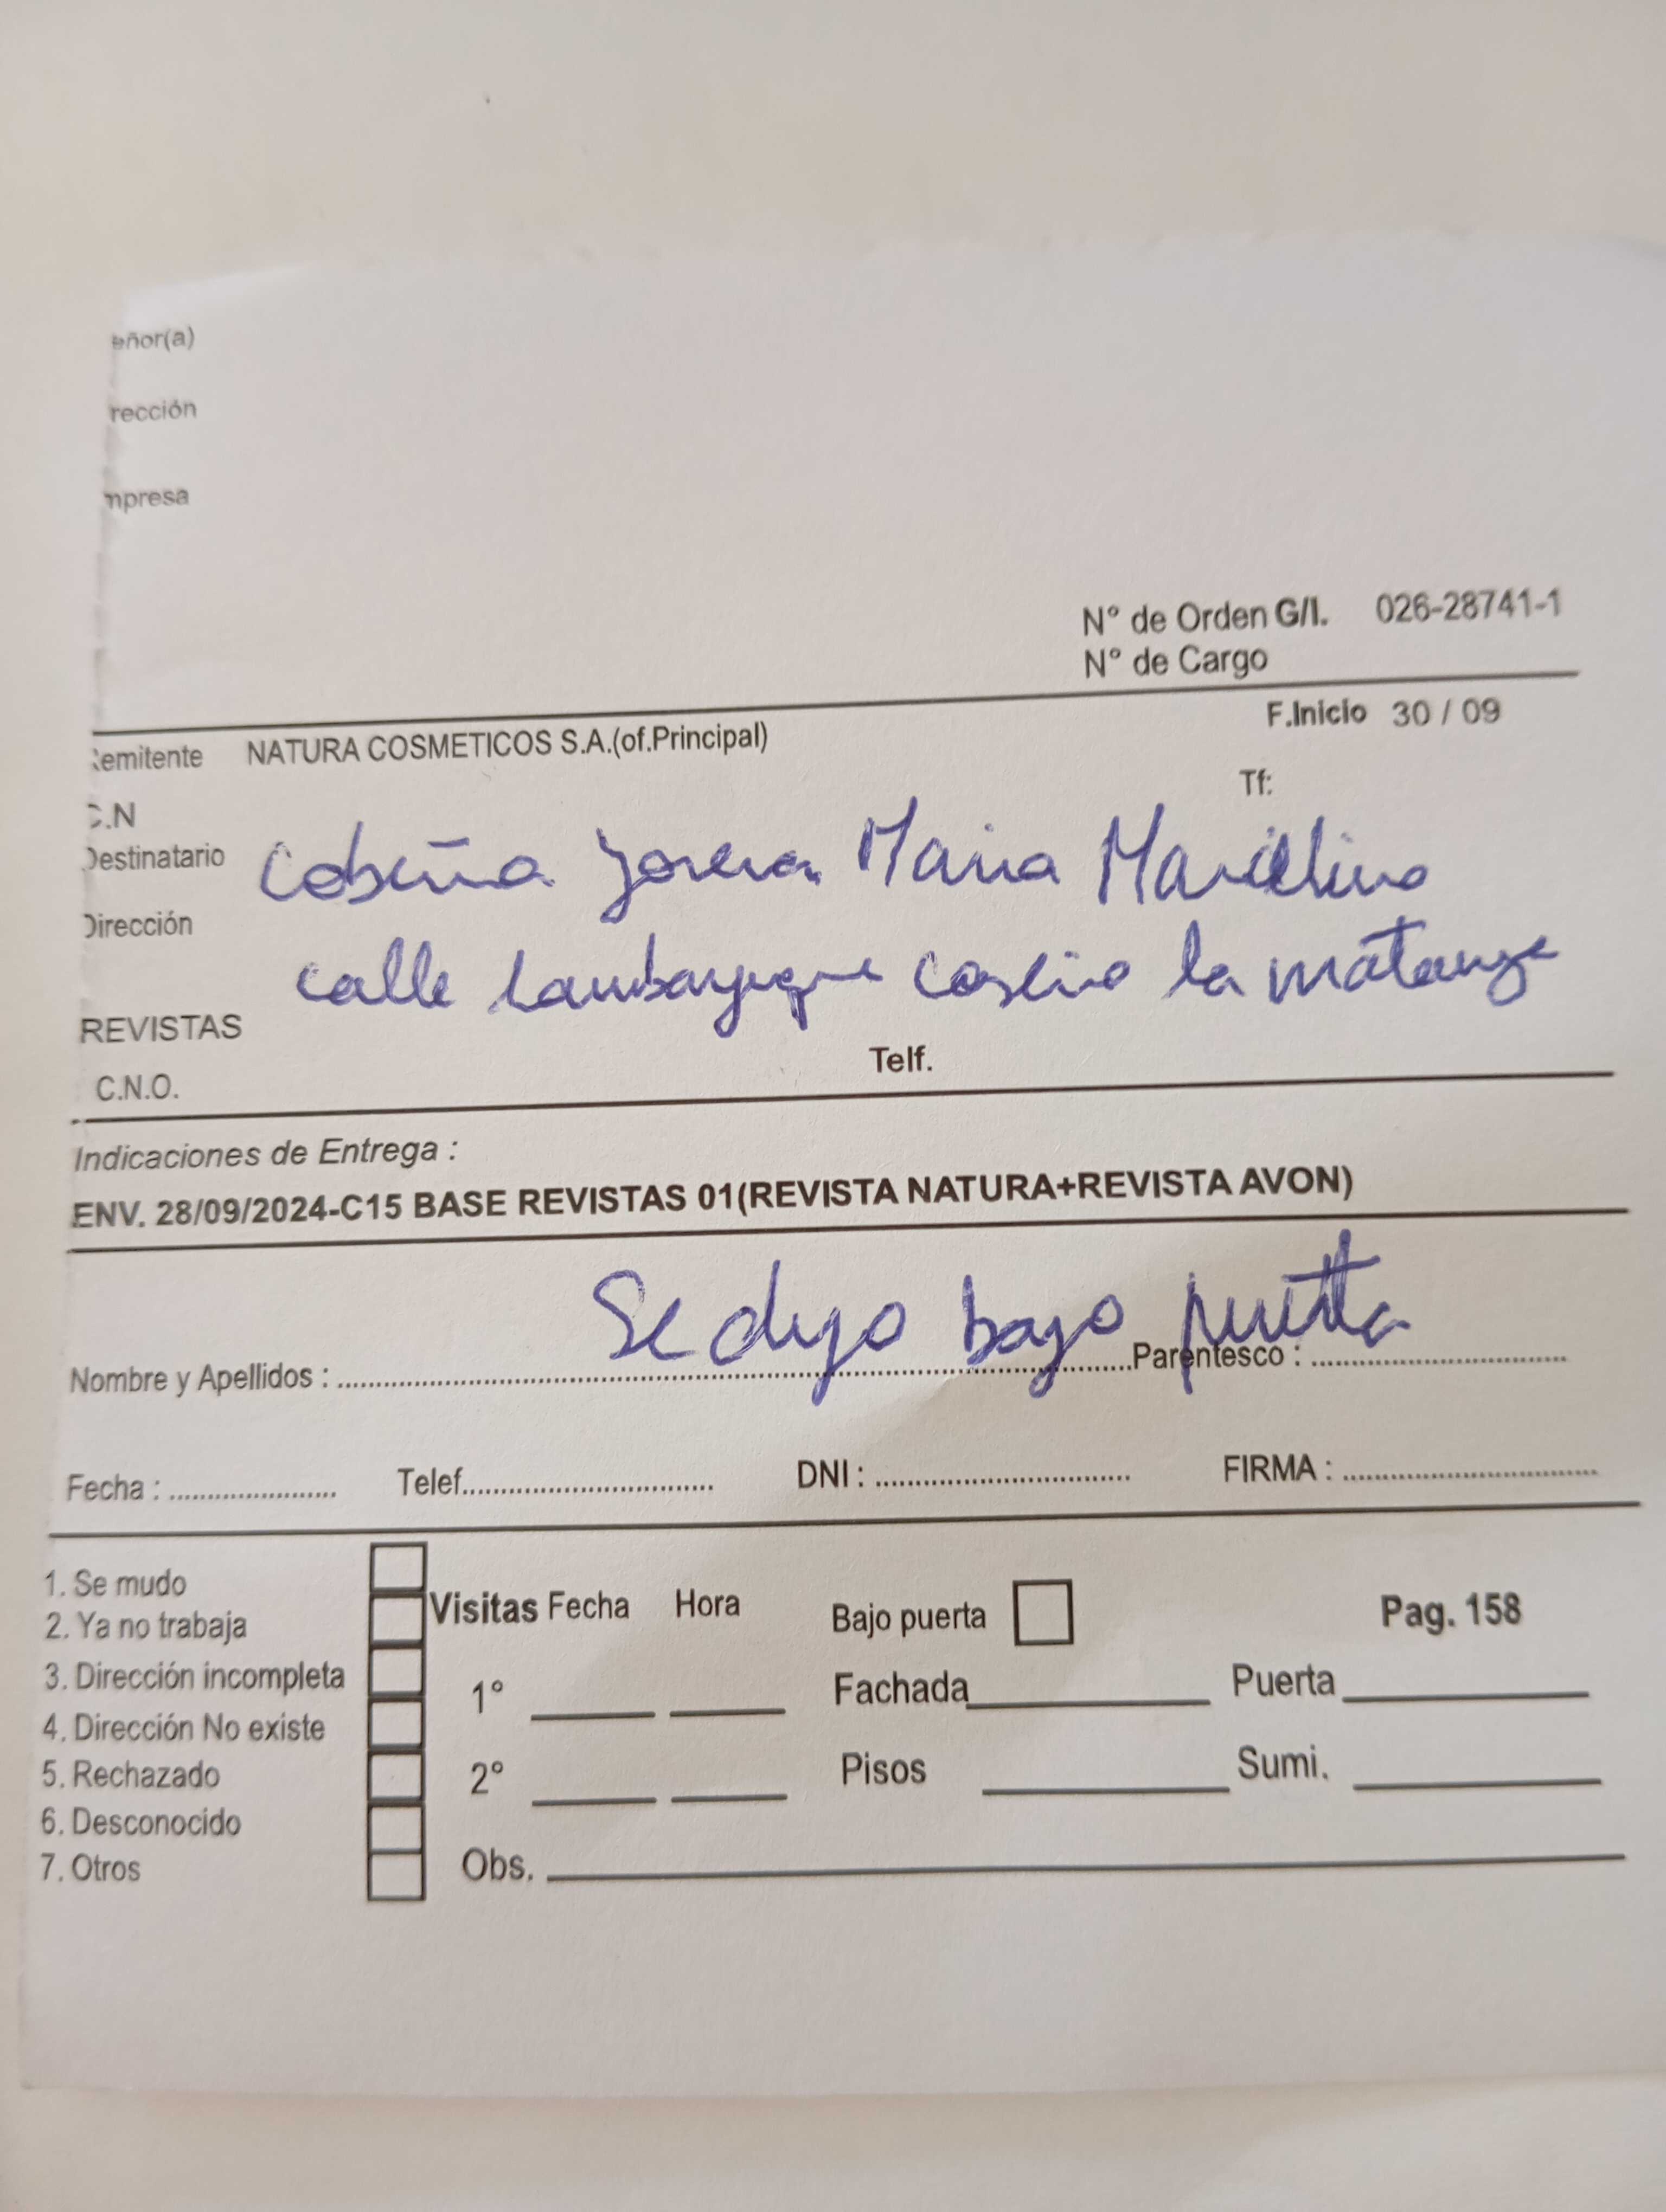 eñor(a)
rección
mpresa
N° de Orden G/I. 026-28741-1
N° de Cargo
F.Inicio 30 / 09
Remitente NATURA COSMETICOS S.A.(of.Principal)
Tf:
C.N
Destinatario Cobeña Maria
Dirección
calle Lambayeque la matanza
REVISTAS
Telf.
C.N.O.
Indicaciones de Entrega :
ENV. 28/09/2024-C15 BASE REVISTAS 01(REVISTA NATURA+REVISTA AVON)
Se dejo bajo puerta
Nombre y Apellidos : Parentesco :
Fecha : Telef. DNI : FIRMA :
1. Se mudo
2. Ya no trabaja
3. Dirección incompleta
4. Dirección No existe
5. Rechazado
6. Desconocido
7. Otros
Visitas Fecha Hora
1°
2°
Obs.
Bajo puerta Pag. 158
Fachada Puerta
Pisos Sumi.